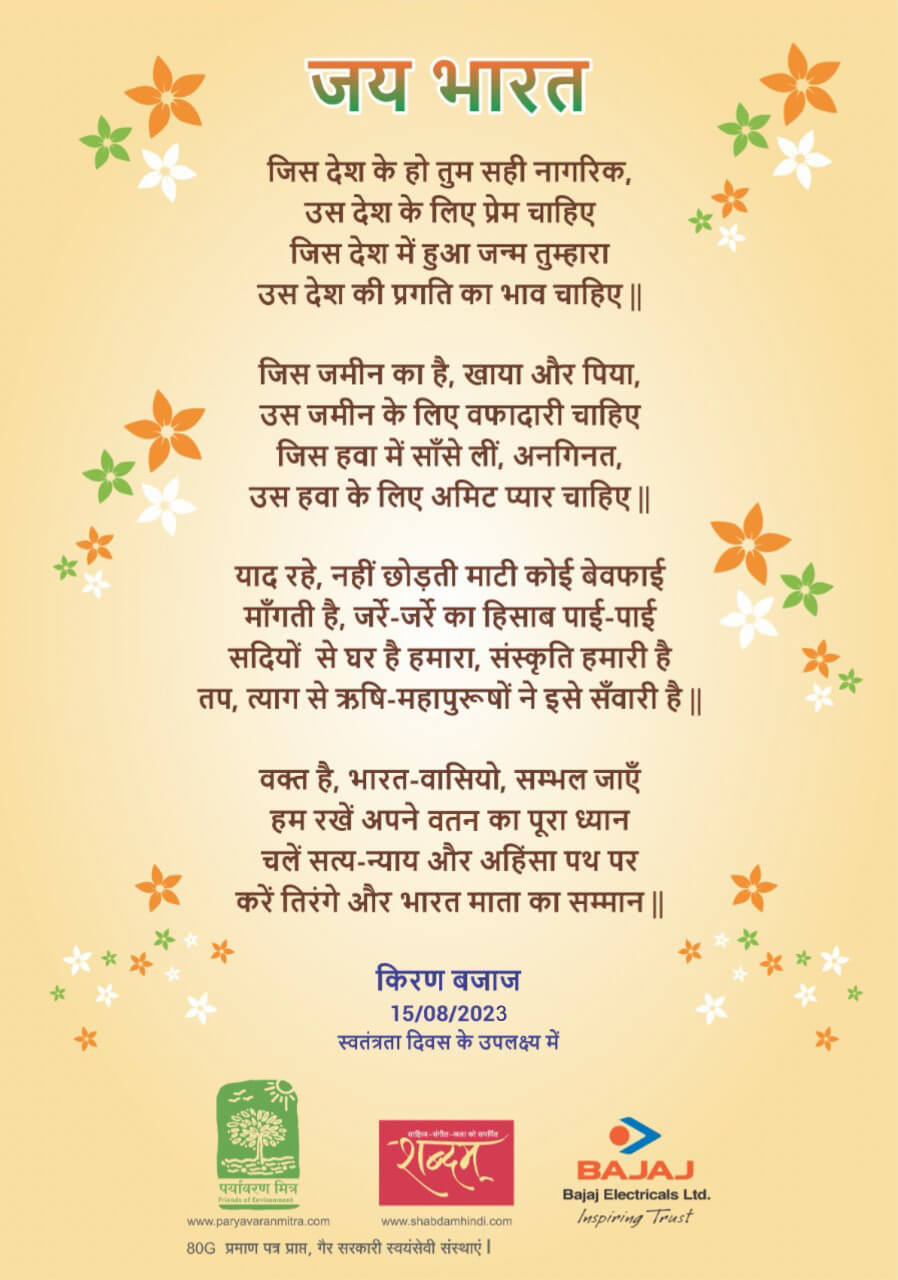 जय भारत
जिस देश के हो तुम सही नागरिक,
उस देश के लिए प्रेम चाहिए
जिस देश में हुआ जन्म तुम्हारा
उस देश की प्रगति का भाव चाहिए ||
जिस जमीन का है, खाया और पिया,
उस जमीन के लिए वफादारी चाहिए
जिस हवा में साँसे लीं, अनगिनत,
उस हवा के लिए अमिट प्यार चाहिए ||
याद रहे, नहीं छोड़ती माटी कोई बेवफाई
माँगती है, जर्रे-जर्रे का हिसाब पाई-पाई
सदियों से घर है हमारा, संस्कृति हमारी है
तप, त्याग से ऋषि-महापुरूषों ने इसे सँवारी है ||
वक्त है, भारत-वासियो, सम्भल जाएँ
हम रखें अपने वतन का पूरा ध्यान
चलें सत्य-न्याय और अहिंसा पथ पर
करें तिरंगे और भारत माता का सम्मान ||
किरण बजाज
15/08/2023
स्वतंत्रता दिवस के उपलक्ष्य में
पर्यावरण मित्र
Friends of Environment
www.paryavaranmitra.com
साहित्य-संगीत-कला को समर्पित
शब्दम्
www.shabdamhindi.com
BAJAJ
Bajaj Electricals Ltd.
Inspiring Trust
80G प्रमाण पत्र प्राप्त, गैर सरकारी स्वयंसेवी संस्थाएं |